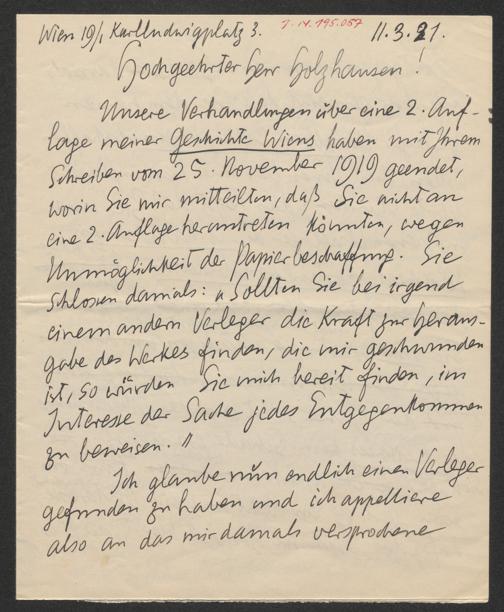 Wien 19/1 Karlludwigplatz 3. I.N. 195.057 11.3.21.
Hochgeehrter Herr Holzhausen!
Unsere Verhandlungen über eine 2. Auf-
lage meiner Geschichte Wiens haben mit Ihrem
Schreiben vom 25. November 1919 geendet,
worin Sie mir mitteilten, daß Sie nicht an
eine 2. Auflage herantreten könnten, wegen
Unmöglichkeit der Papierbeschaffung. Sie
schlossen damals: „Sollten Sie bei irgend
einem andern Verleger die Kraft zur Heraus-
gabe des Werkes finden, die mir geschwunden
ist, so würden Sie mich bereit finden, im
Interesse der Sache jedes Entgegenkommen
zu beweisen."
Ich glaube nun endlich einen Verleger
gefunden zu haben und ich appelliere
also an das mir damals versprochene